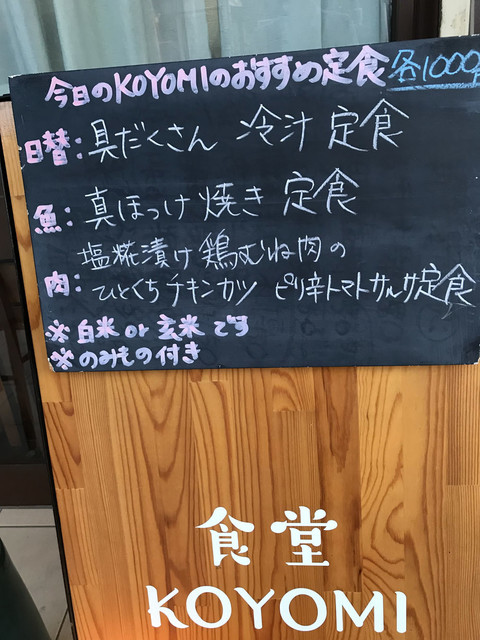 今日のKOYOMIのおすすめ定食 各1000
日替:具だくさん 冷汁 定食
魚:真ほっけ焼き 定食
塩糀漬け鶏むね肉の
肉:ひとくちチキンカツ ピリ辛トマトサルサ定食
※白米or玄米です
※のみもの付き
食堂
KOYOMI